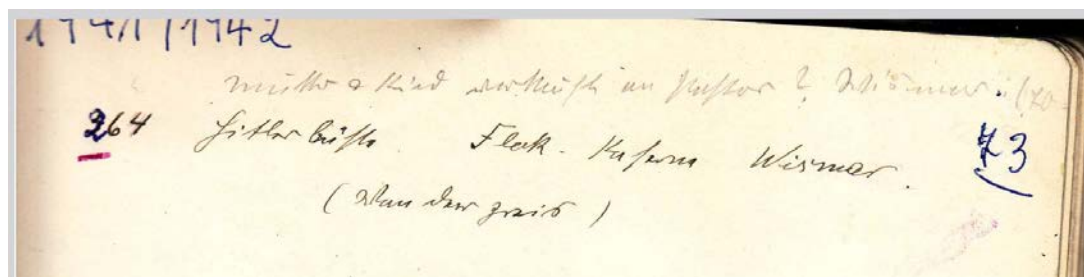 1941/1942
Mutter & Kind verkauft an Pastor ? Wismar. (70
264 Hitlerbüste. Flak-Kaserne Wismar. 73
(Wanderpreis)